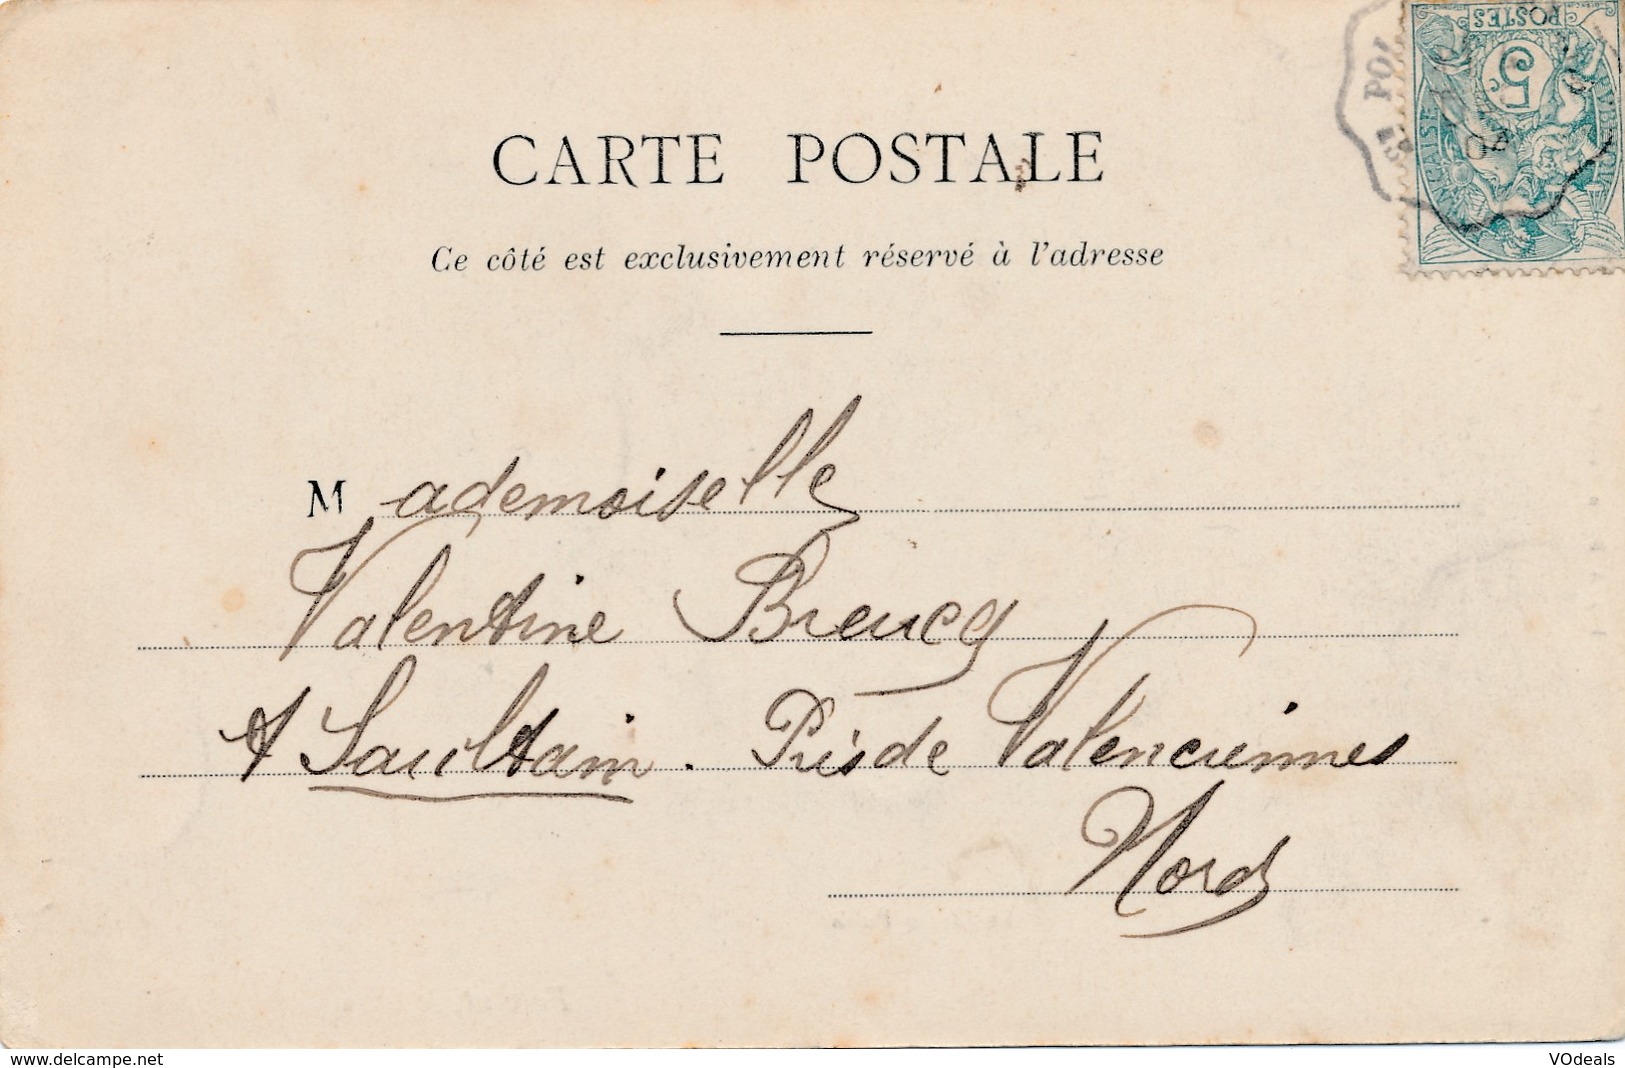 CARTE POSTALE
Ce côté est exclusivement réservé à l'adresse
POSTES
5c
04
Mademoiselle
Valentine Breucq
A Saultain. Près de Valenciennes
Nord
www.delcampe.net
VOdeals